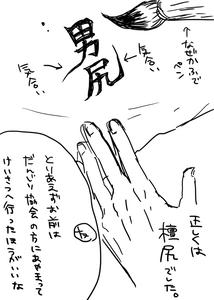 男尻
気合い
気合い
↑なぜかふで
ペン
正しくは
檀尻でした。
とりあえずお前は
だんじり協会の方にあやまって
けいさつへ行ったほうがいいな